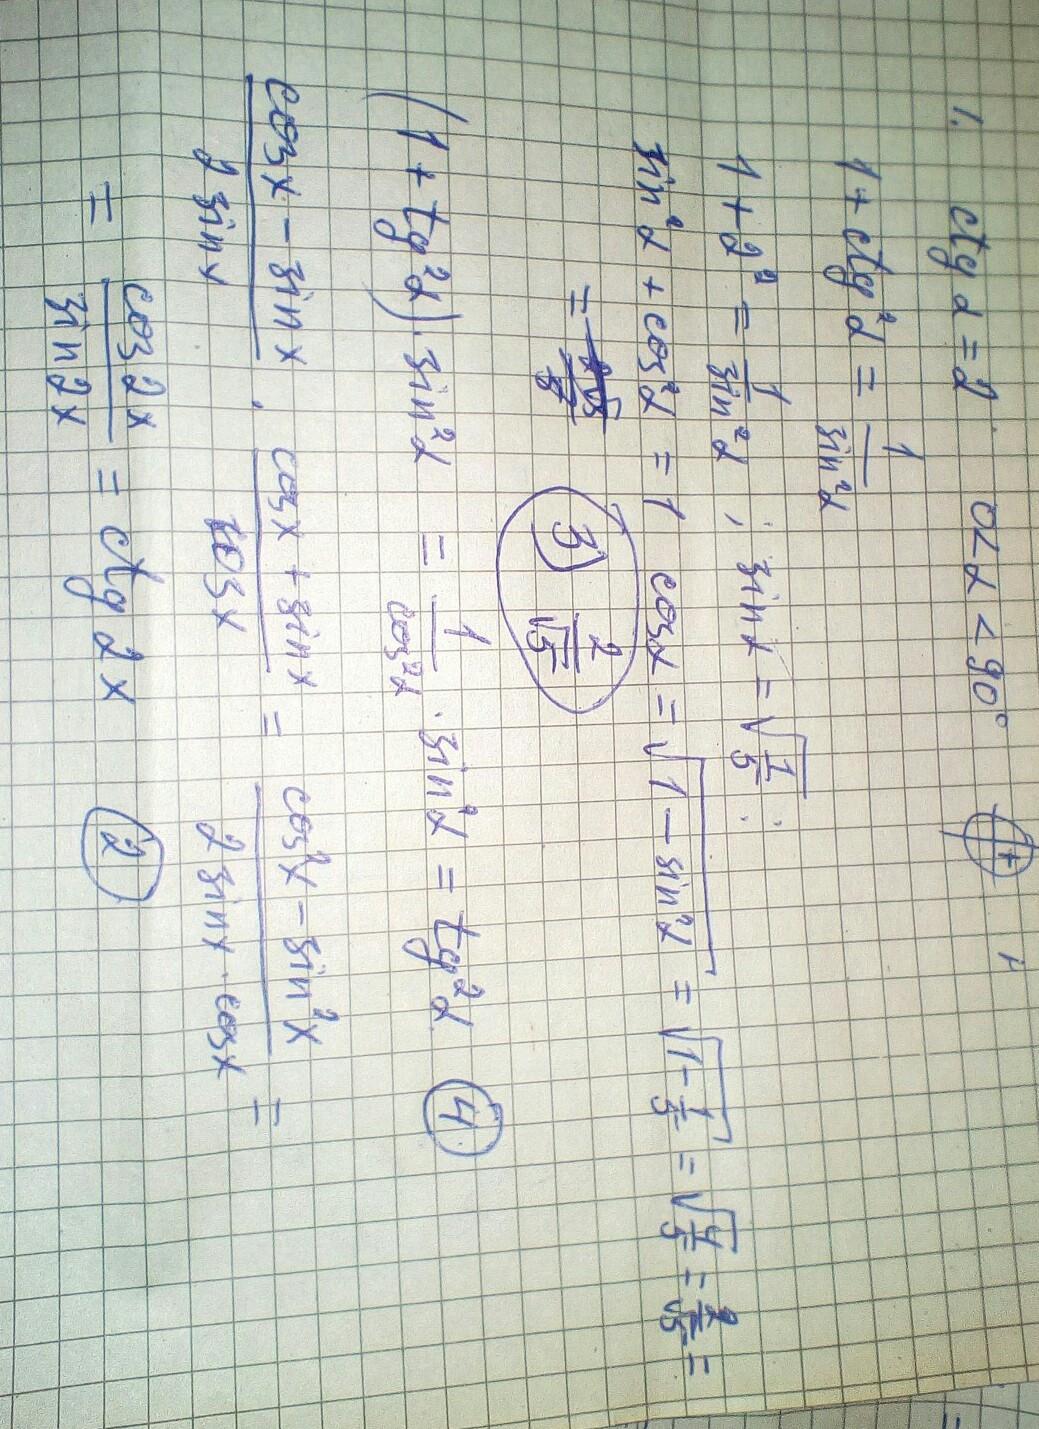 1. ctg α = 2 0 < α < 90° +
1 + ctg²α = 1/sin²α
1 + 2² = 1/sin²α ; sin α = √(1/5) ;
sin²α + cos²α = 1 cos α = √(1 - sin²α) = √(1 - 1/5) = √(4/5) = 2/√5 =
= 3) 2/√5
(1 + tg²α) · sin²α = 1/cos²α · sin²α = tg²α 4
(cos x - sin x)/(2 sin x) · (cos x + sin x)/(cos x) = (cos²x - sin²x)/(2 sin x · cos x) =
= cos 2x/sin 2x = ctg 2x 2